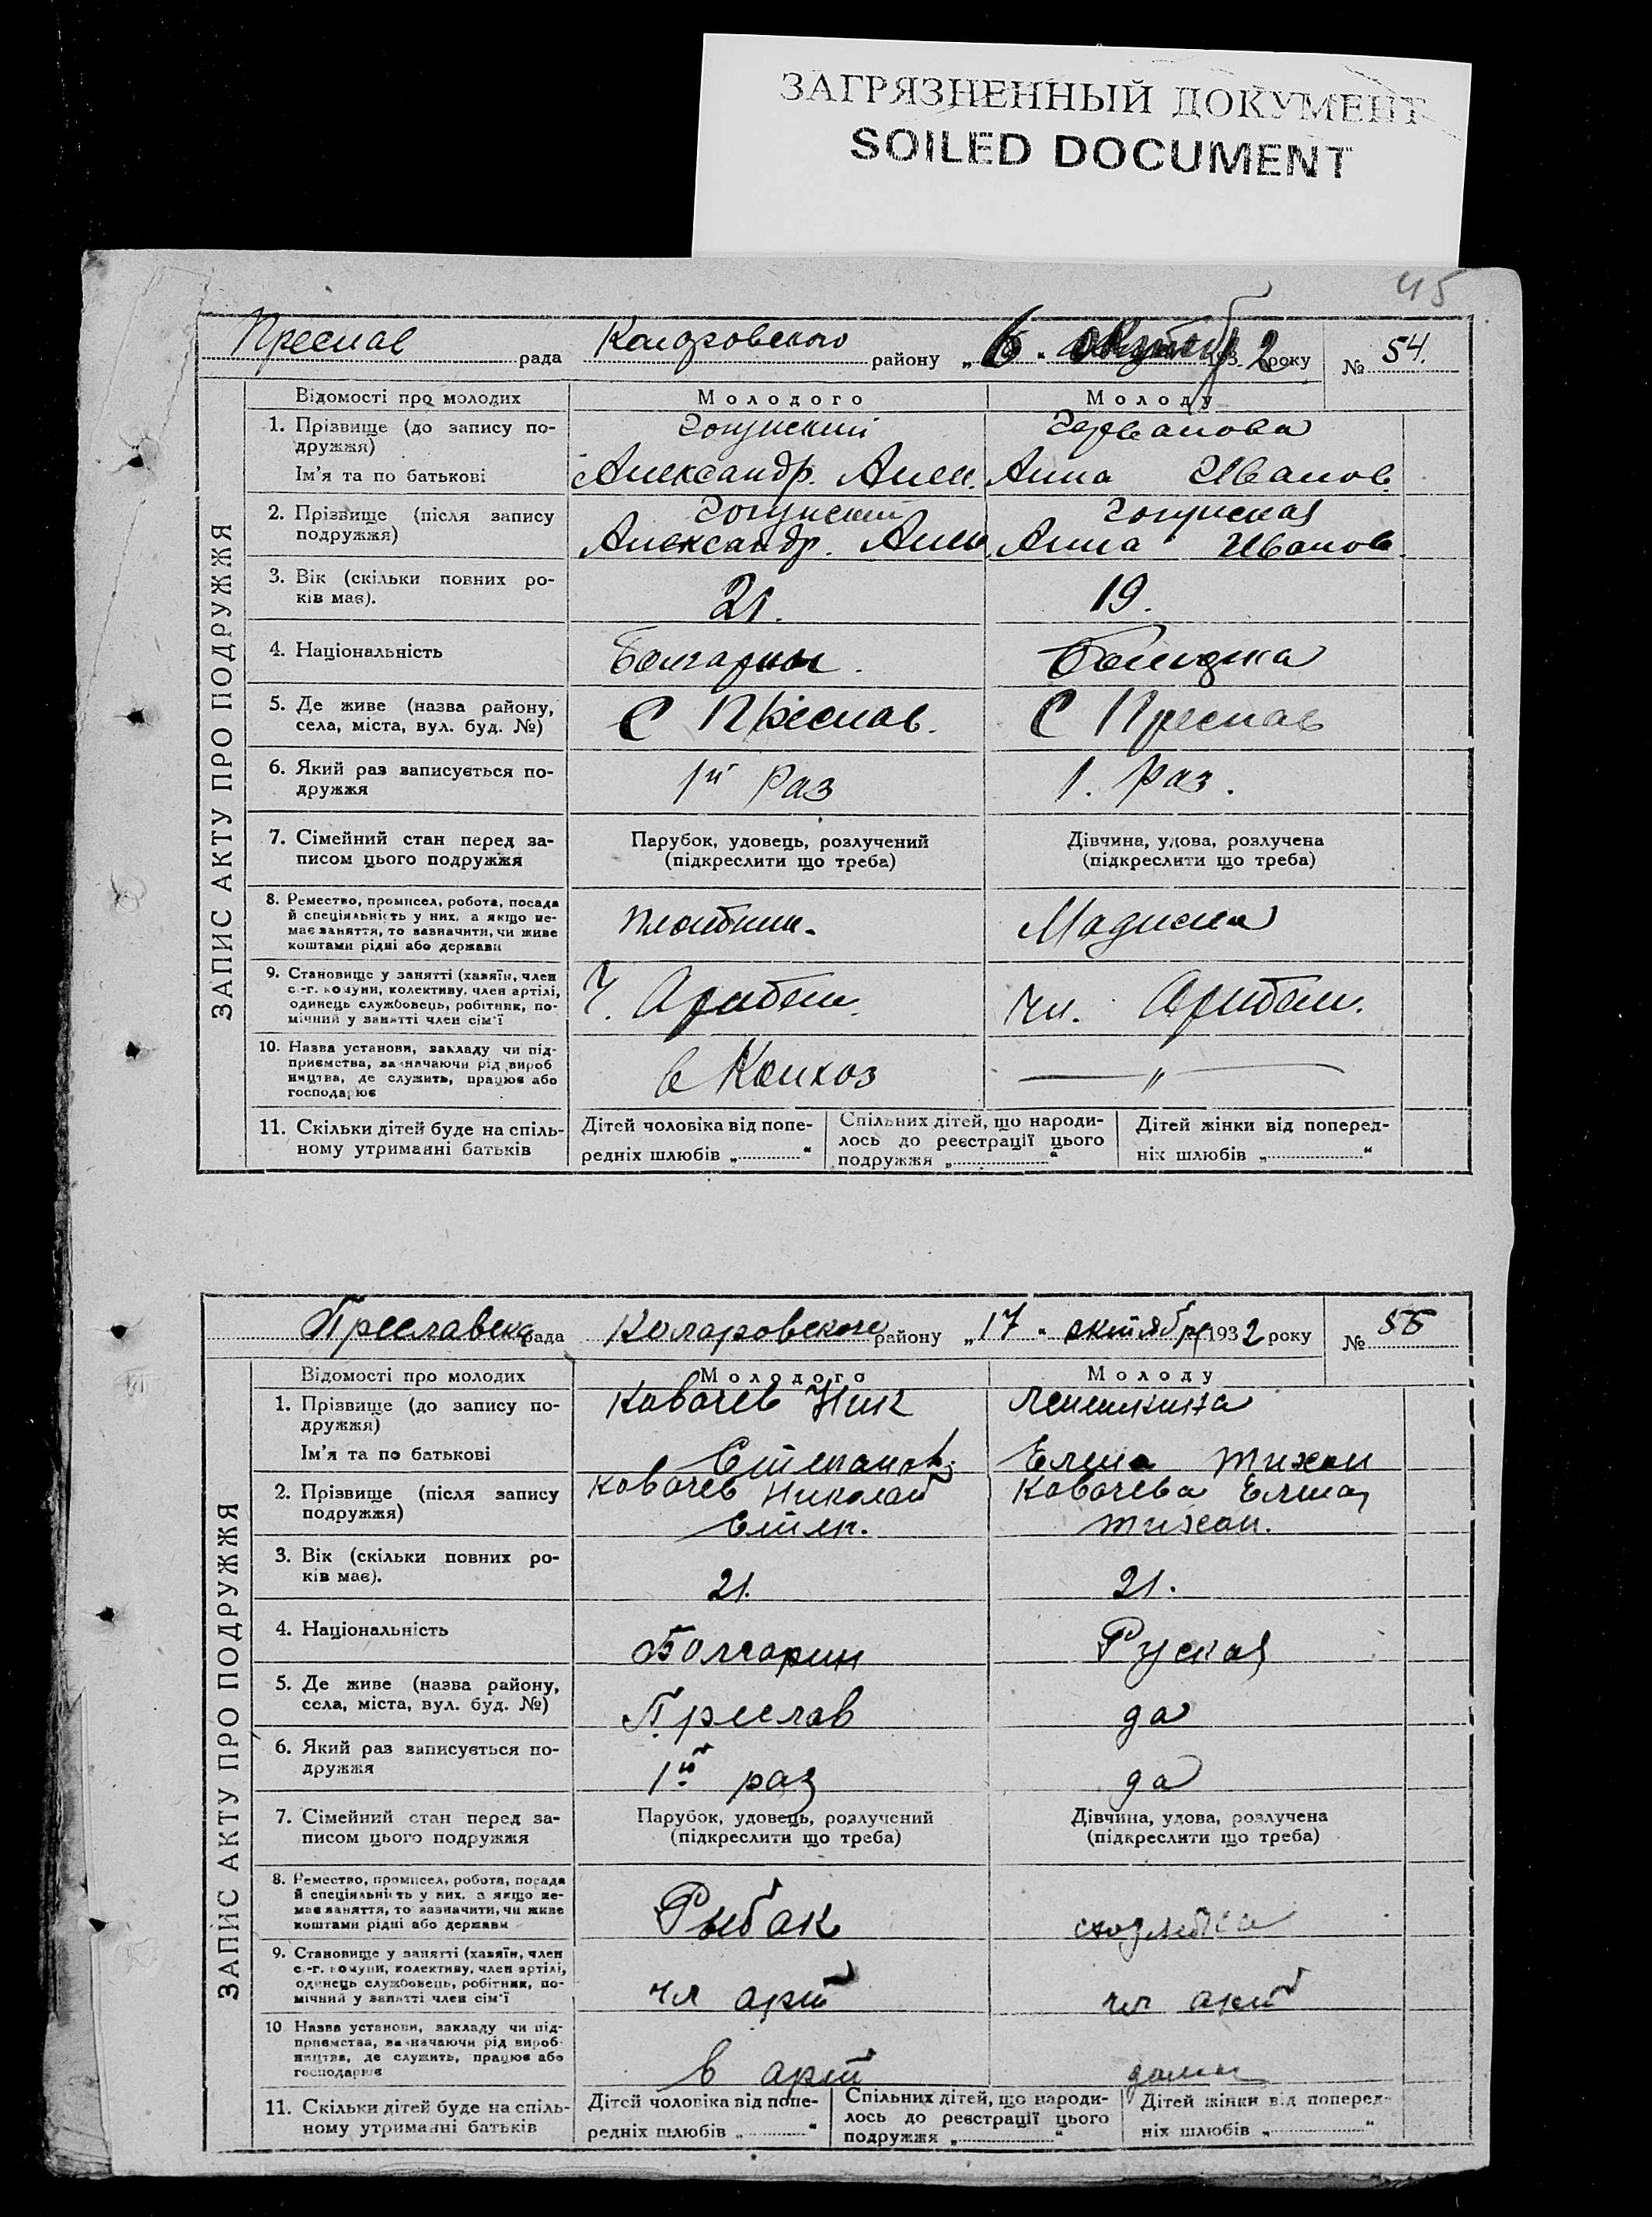 ЗАГРЯЗНЕННЫЙ ДОКУМЕНТ
SOILED DOCUMENT
45
Преслав рада Коларовского району „6“ октябр 1932 року № 54.
ЗАПИС АКТУ ПРО ПОДРУЖЖЯ
Відомості про молодих Молодого Молоду
1. Прізвище (до запису по-
дружжя)
Ім'я та по батькові Александр. Алек. Анна Иванов.
2. Прізвище (після запису
подружжя) Александр. Алек Анна Иванов.
3. Вік (скільки повних ро-
ків має). 21. 19.
4. Національність Болгарин. Болгарка
5. Де живе (назва району,
села, міста, вул. буд. №) С Преслав. С Преслав
6. Який раз записується по-
дружжя 1й Раз 1. Раз.
7. Сімейний стан перед за-
писом цього подружжя
Парубок, удовець, розлучений
(підкреслити що треба)
Дівчина, удова, розлучена
(підкреслити що треба)
8. Ремество, промисел, робота, посада
й спеціяльність у них, а якщо не-
має заняття, то зазначити, чи живе
коштами рідні або держави
Плотник.
9. Становище у занятті (хазяїн, член
с.-г. комуни, колективу, член артілі,
одинець службовець, робітник, по-
мічний у занятті член сім'ї
Ч. Артели. Чл. Артели.
10. Назва установи, закладу чи під-
приємства, зазначаючи рід вироб
ництва, де служить, працює або
господарює
в Колхоз — „ —
11. Скільки дітей буде на спіль-
ному утриманні батьків
Дітей чоловіка від попе-
редніх шлюбів „ “
Спільних дітей, що народи-
лось до реєстрації цього
подружжя „ “
Дітей жінки від поперед-
ніх шлюбів „ “
Преславска рада Коларовского району „17“ октябр 1932 року № 55
ЗАПИС АКТУ ПРО ПОДРУЖЖЯ
Відомості про молодих Молодого Молоду
1. Прізвище (до запису по-
дружжя) Ковачев Ник
Ім'я та по батькові Степанов Елена Тихон
2. Прізвище (після запису Ковачев Николай Ковачева Елена
подружжя) Степ. Тихон.
3. Вік (скільки повних ро-
ків має). 21. 21.
4. Національність Болгарин Руская
5. Де живе (назва району,
села, міста, вул. буд. №) Преслав да
6. Який раз записується по-
дружжя 1й раз да
7. Сімейний стан перед за-
писом цього подружжя
Парубок, удовець, розлучений
(підкреслити що треба)
Дівчина, удова, розлучена
(підкреслити що треба)
8. Ремество, промисел, робота, посада
й спеціяльність у них, а якщо не-
має заняття, то зазначити, чи живе
коштами рідні або держави
Рыбак
9. Становище у занятті (хазяїн, член
с.-г. комуни, колективу, член артілі,
одинець службовець, робітник, по-
мічний у занятті член сім'ї
чл арт чл арт
10 Назва установи, закладу чи під-
приємства, зазначаючи рід вироб-
ництва, де служить, працює або
господарює
в арт
11. Скільки дітей буде на спіль-
ному утриманні батьків
Дітей чоловіка від попе-
редніх шлюбів „ “
Спільних дітей, що народи-
лось до реєстрації цього
подружжя „ “
Дітей жінки від поперед-
ніх шлюбів „ “